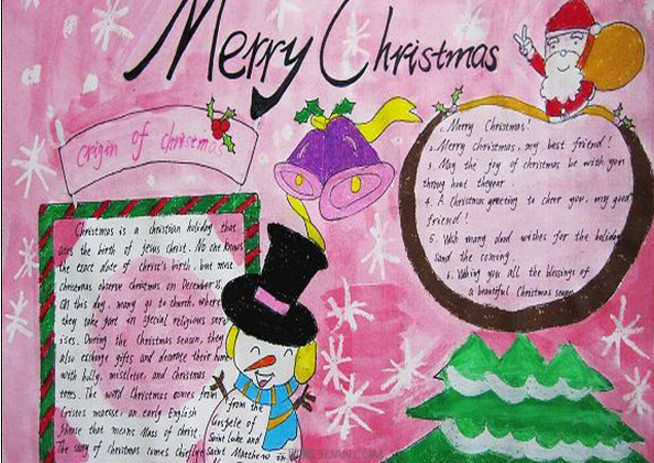 Merry Christmas
origin of christmas
Christmas is a christian holiday that
the birth of jesus christ. No one knows
the exact date of christ's birth, but most
Christmas observe christmas on December 25,
On this day, many go to church, where
they take part in special religious serv
ises. During the Christmas season, they
also exchange gifts and decorate their home
with holly, mistletoe, and Christmas
trees. The word Christmas comes from
maesse, an early English
phrase that means Mass of christ.
The song of christmas comes chiefly
from the
Gospels of
Saint Luke and
Saint Matthew in
1. Merry Christmas!
2. Merry Christmas, my best friend!
3. May the joy of christmas be with you
throug hout theyear.
4. A Christmas greeting to cheer you, my good
friend!
5. Wish many good wishes for the holiday
and the coming.
6. Wishing you all the blessings of
a beautiful Christmas season